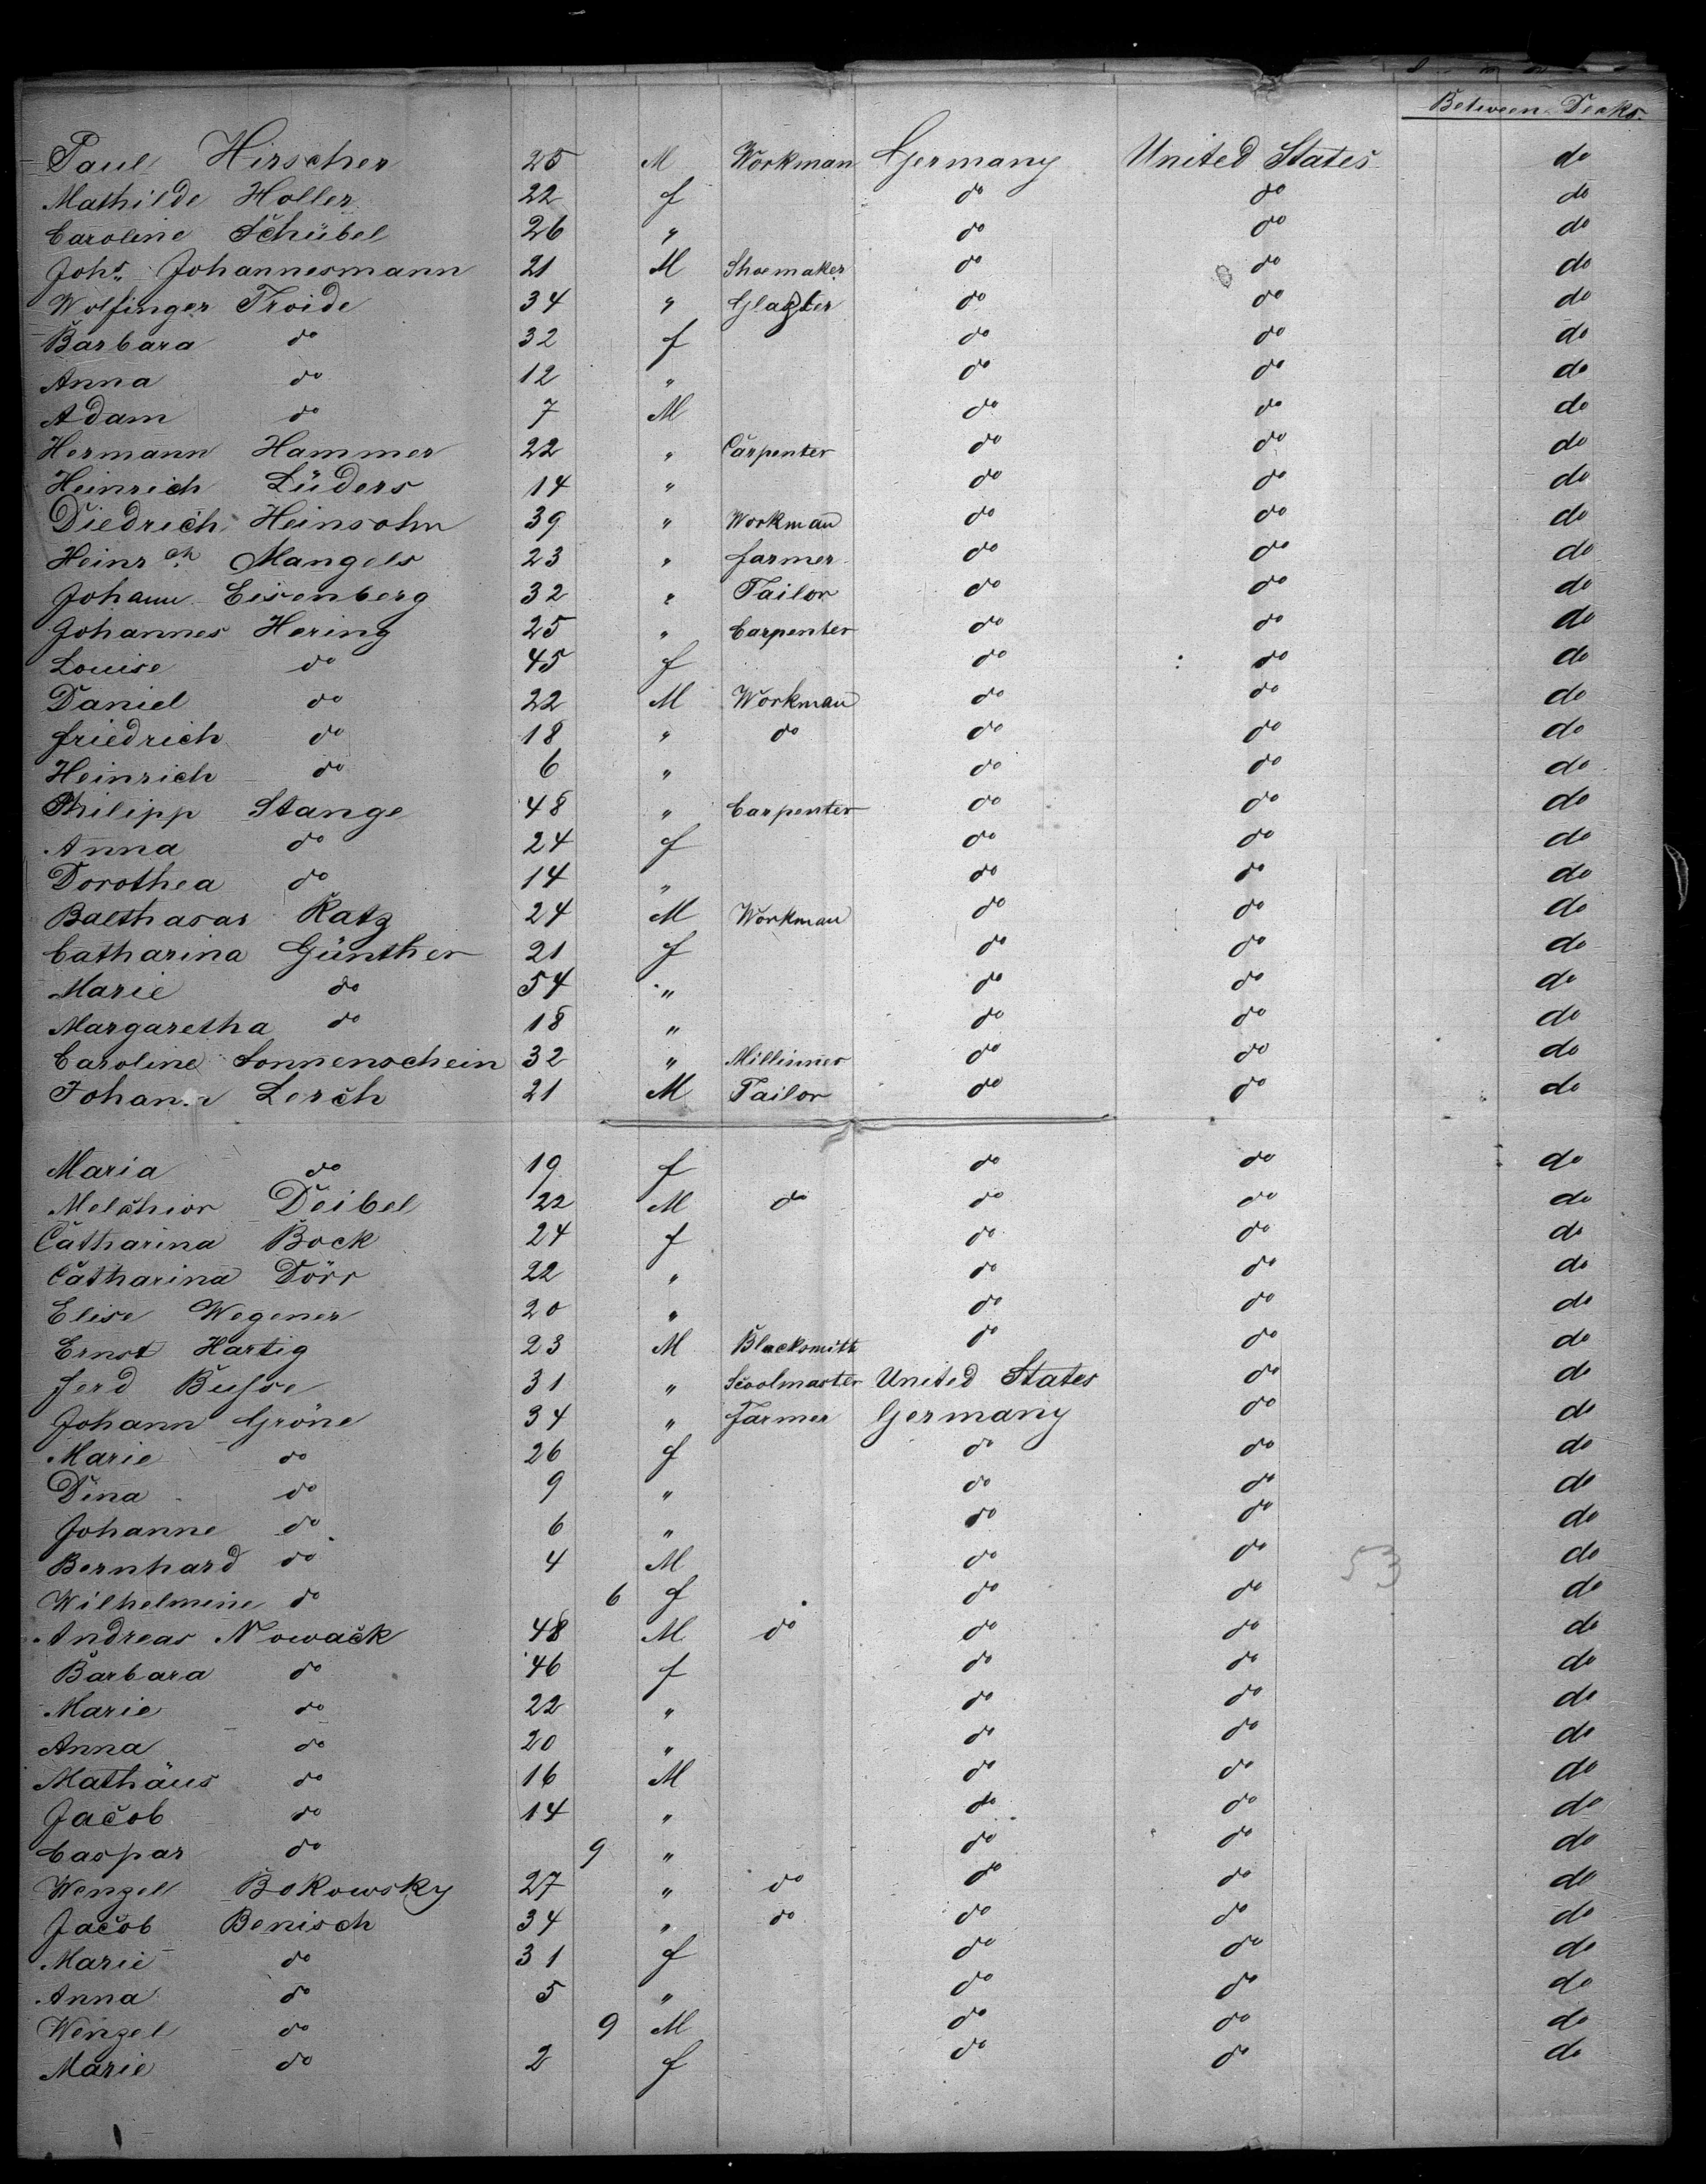 Between Decks.
Paul Hirscher 25 M Workman Germany United States do
Mathilde Holler 22 f do do do
Caroline Schübel 26 " do do do
Johs Johannesmann 21 M Shoemaker do do do
Wolfinger Troide 34 " Glazier do do do
Barbara do 32 f do do do
Anna do 12 " do do do
Adam do 7 M do do do
Hermann Hammer 22 " Carpenter do do do
Heinrich Lüders 14 " do do do
Diedrich Heinsohn 39 " Workman do do do
Heinrch Mangels 23 " farmer do do do
Johann Eisenberg 32 " Tailor do do do
Johannes Hering 25 " Carpenter do do do
Louise do 45 f do do do
Daniel do 22 M Workman do do do
friedrich do 18 " do do do do
Heinrich do 6 " do do do
Philipp Stange 48 " Carpenter do do do
Anna do 24 f do do do
Dorothea do 14 " do do do
Balthasar Katz 24 M Workman do do do
Catharina Günther 21 f do do do
Marie do 54 " do do do
Margaretha do 18 " do do do
Caroline Sonnenschein 32 " Millinner do do do
Johann Lerch 21 M Tailor do do do
Maria do 19 f do do do
Melchior Deibel 22 M do do do do
Catharina Bock 24 f do do do
Catharina Dörr 22 " do do do
Elise Wegener 20 " do do do
Ernst Hartig 23 M Blacksmith do do do
ferd Busse 31 " Scoolmaster United States do do
Johann Gröne 34 " Farmer Germany do do
Marie do 26 f do do do
Dina do 9 " do do do
Johanne do 6 " do do do
Bernhard do 4 M do do 53 do
Wilhelmine do 6 f do do do
Andreas Nowack 48 M do do do do
Barbara do 46 f do do do
Marie do 22 " do do do
Anna do 20 " do do do
Mathäus do 16 M do do do
Jacob do 14 " do do do
Caspar do 9 " do do do
Wenzel Bokowsky 27 " do do do do
Jacob Benisch 34 " do do do do
Marie do 31 f do do do
Anna do 5 " do do do
Wenzel do 9 M do do do
Marie do 2 f do do do